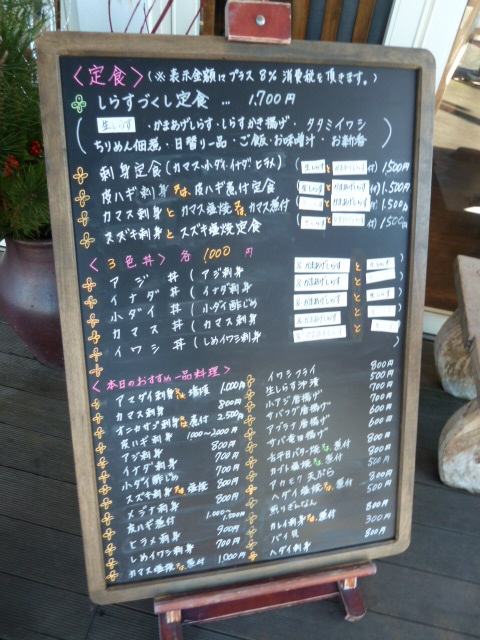 〈定食〉(※表示金額にプラス8%消費税を頂きます。)
しらすづくし定食 … 1,700円
(生しらす・かまあげしらす・しらすかき揚げ・タタミイワシ
ちりめん佃煮・日替り一品・ご飯・お味噌汁・お新香)
刺身定食(カマス・小ダイ・イナダ・ヒラメ) (生しらすとかまあげしらす付) 1,500円
皮ハギ刺身又は皮ハギ煮付定食 (生しらすとかまあげしらす付) 1,500円
カマス刺身とカマス塩焼又はカマス煮付 (とかまあげしらす付) 1,500円
スズキ刺身とスズキ塩焼定食 (生しらすと付) 1500円
〈3色丼〉各1000円
アジ丼(アジ刺身 & かまあげしらすと生しらす)
イナダ丼(イナダ刺身 & かまあげしらすと
小ダイ丼(小ダイ酢じめ & かまあげしらすと生しらす
カマス丼(カマス刺身 & かまあげしらすと
イワシ丼(しめイワシ刺身 と
〈本日のおすすめ一品料理〉
アマダイ刺身又は塩焼 1,000円
カマス刺身 800円
オニカサゴ刺身又は煮付 2,500円
皮ハギ刺身 1000〜2000円
アジ刺身 800円
イナダ刺身 700円
小ダイ酢じめ 700円
スズキ刺身又は塩焼 800円
メジナ刺身 800円
皮ハギ煮付 1,000〜1,500円
ヒラメ刺身 900円
しめイワシ刺身 700円
カマス塩焼又は煮付 1,000円
イワシフライ 800円
生しらす沖漬 500円
小アジ唐揚げ 700円
サバフグ唐揚げ 700円
アブラ唐揚げ 600円
サバ竜田揚げ 600円
バター焼又は煮付 800円
カイト塩焼又は煮付 800円
アカモク天ぷら 500円
ヘダイ塩焼又は煮付 800円
煎りぎんなん 500円
カレイ刺身又は煮付 800円
バイ貝 300円
ヘダイ刺身 800円